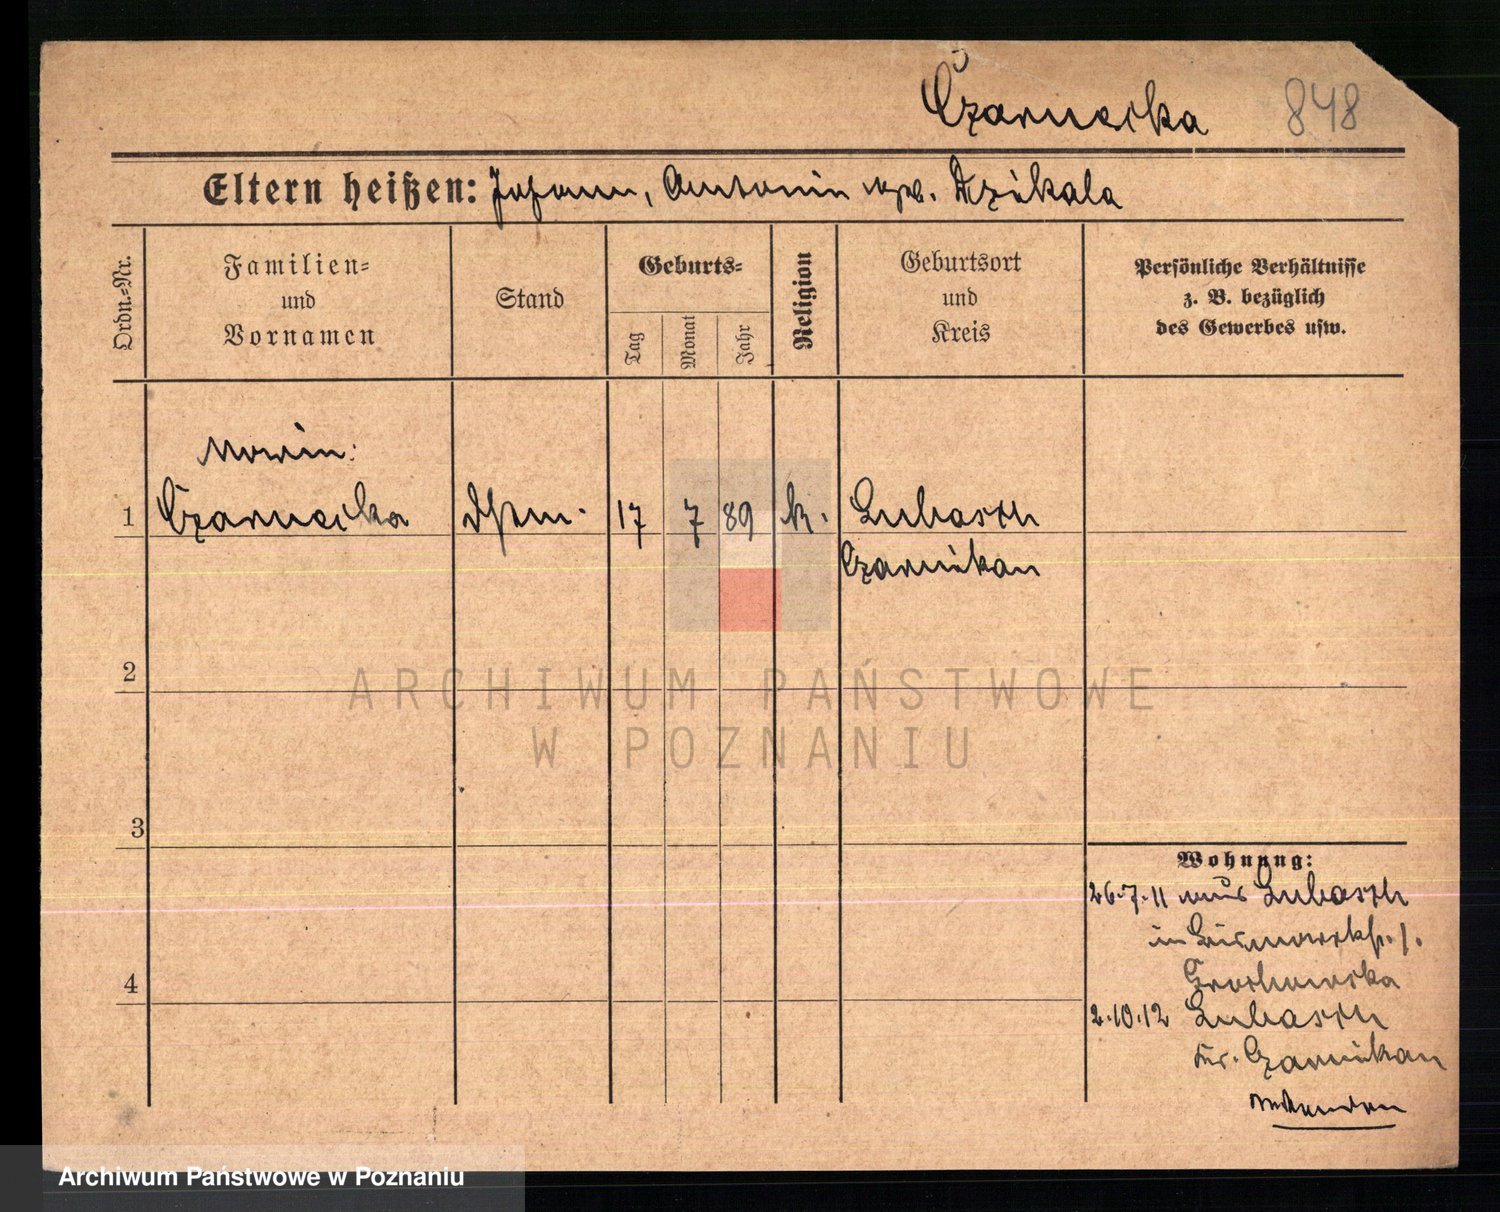 Czarnecka 848
Eltern heißen: Johann, Antonin geb. Dzikala
Ordn.-Nr.
Familien-
und
Vornamen
Stand
Geburts-
Tag
Monat
Jahr
Religion
Geburtsort
und
Kreis
Persönliche Verhältnisse
z. B. bezüglich
des Gewerbes usw.
Marin:
1 Czarnecka 17 7 89 k. Lubasch
Czarnikau
2
ARCHIWUM PAŃSTWOWE
W POZNANIU
3
Wohnung:
26.7.11 aus Lubasch
in Bismarckstr. 1.
Grochowska
4
2.10.12 Lubasch
Kr. Czarnikau
Archiwum Państwowe w Poznaniu